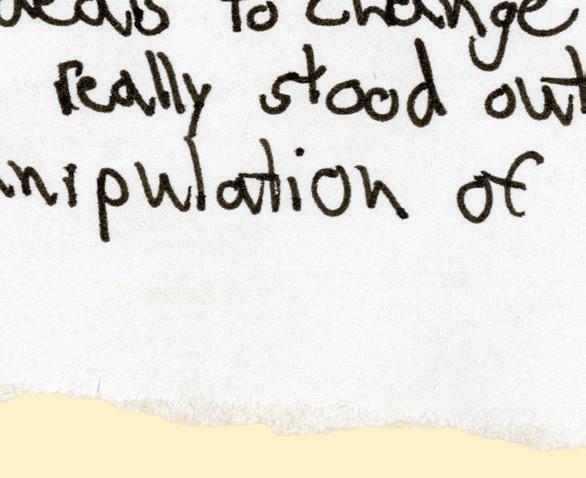 to change
really stood out
anipulation of